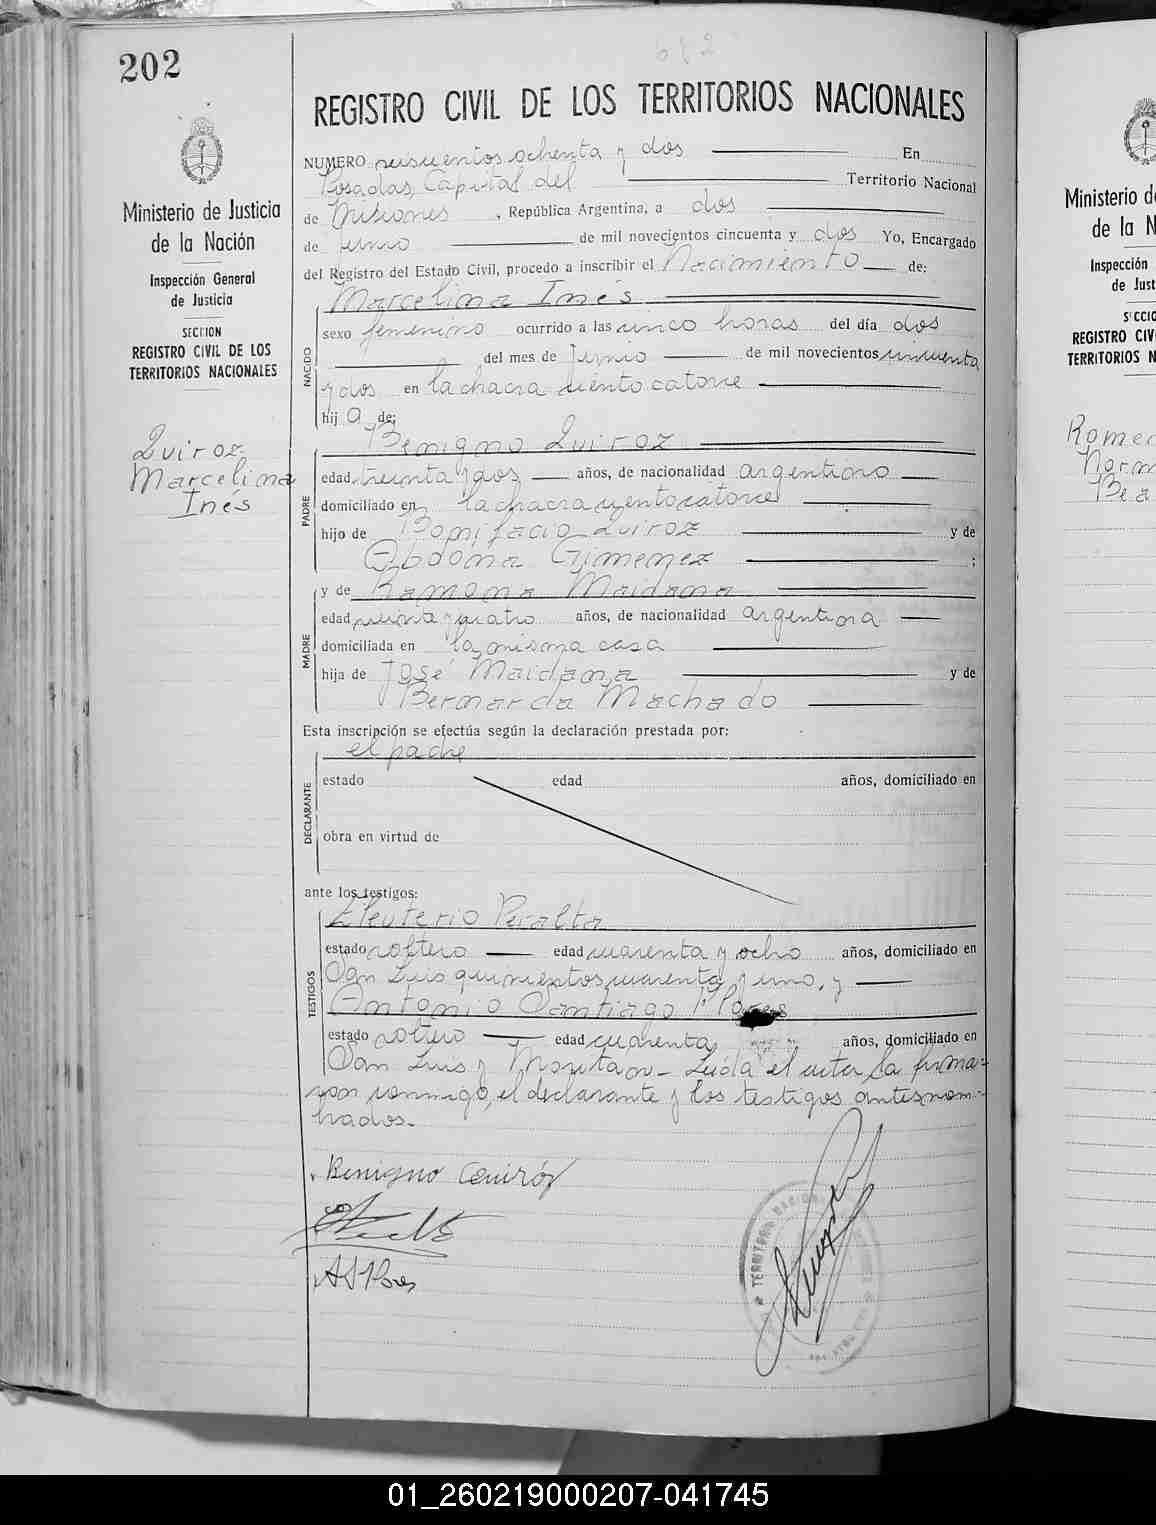 202
682
REGISTRO CIVIL DE LOS TERRITORIOS NACIONALES
Ministerio de Justicia
de la Nación
Inspección General
de Justicia
SECCION
REGISTRO CIVIL DE LOS
TERRITORIOS NACIONALES
Quiroz
Marcelina
Inés
NUMERO seiscientos ochenta y dos En
Posadas, Capital del Territorio Nacional
de Misiones, República Argentina, a dos
de junio de mil novecientos cincuenta y dos Yo, Encargado
del Registro del Estado Civil, procedo a inscribir el Nacimiento de:
Marcelina Inés
NACIDO
sexo femenino ocurrido a las cinco horas del día dos
del mes de Junio de mil novecientos cincuenta
y dos en la chacra ciento catorce
hij a de;
Benigno Quiroz
PADRE
edad treinta y dos años, de nacionalidad argentino
domiciliado en la chacra ciento catorce
hijo de Bonifacio Quiroz y de
Abdona Gimenez ;
y de Ramona Maidana
MADRE
edad treinta y cuatro años, de nacionalidad argentina
domiciliada en la misma casa
hija de José Maidana y de
Bernarda Machado
Esta inscripción se efectúa según la declaración prestada por:
el padre
DECLARANTE
estado edad años, domiciliado en
obra en virtud de
ante los testigos:
Eleuterio Peralta
TESTIGOS
estado soltero edad cuarenta y ocho años, domiciliado en
San Luis quinientos cuarenta y uno, y
Antonio Santiago Flores
estado soltero edad cuarenta, años, domiciliado en
San Luis y Moritan - Leída el acta la firma-
ron conmigo, el declarante y los testigos antes nom-
brados.-
Benigno Quiróz
A S Flores
TERRITORIO NACIONAL
Ministerio de
de la N
Inspección
de Just
SECCIO
REGISTRO CIV
TERRITORIOS N
Romer
Norm
Bea
01_260219000207-041745